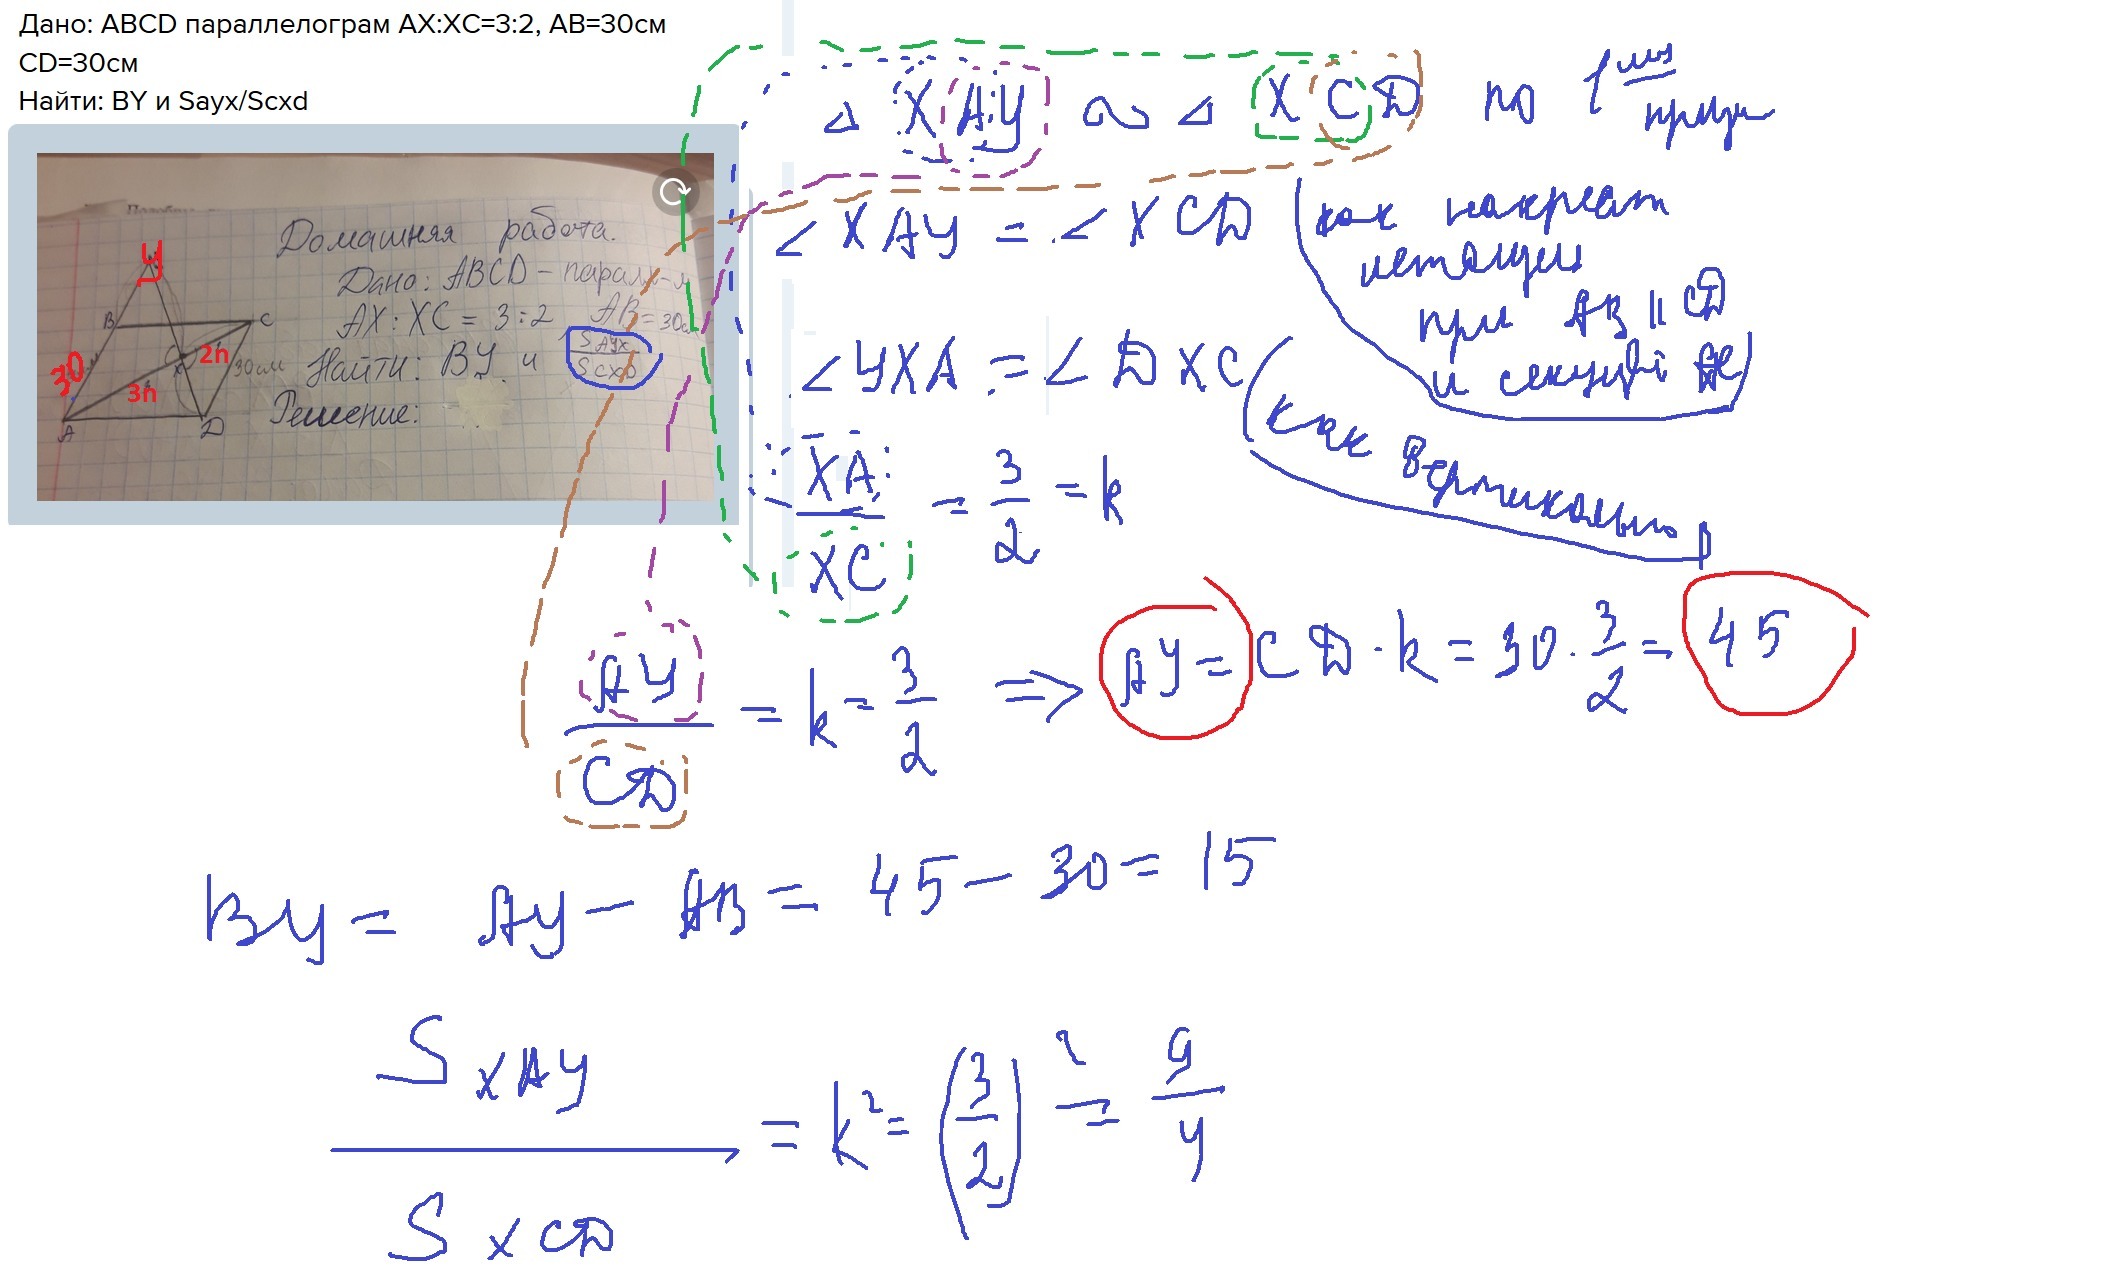 Дано: ABCD параллелограм AX:XC=3:2, AB=30см
CD=30см
Найти: BY и Sayx/Scxd
Домашняя работа.
Дано: ABCD - парал-м
AX : XC = 3 : 2 AB = 30см
Найти: BY и SAYX/SCXD
Решение:
Y
B
C
X
A
D
30
3n
2n
30см
△ XAY ∾ △ XCD по 1
∠XAY = ∠XCD как накрест
при AB || CD
и секущей AC
∠YXA = ∠DXC
как вертикальн
XA/XC = 3/2 = k
AY/CD = k = 3/2 => AY = CD · k = 30 · 3/2 = 45
BY = AY - AB = 45 - 30 = 15
S XAY / S XCD = k² = (3/2)² = 9/4